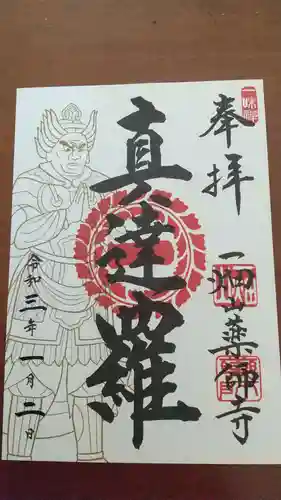 奉拝
一畑山薬師寺
真達羅
令和三年一月二日